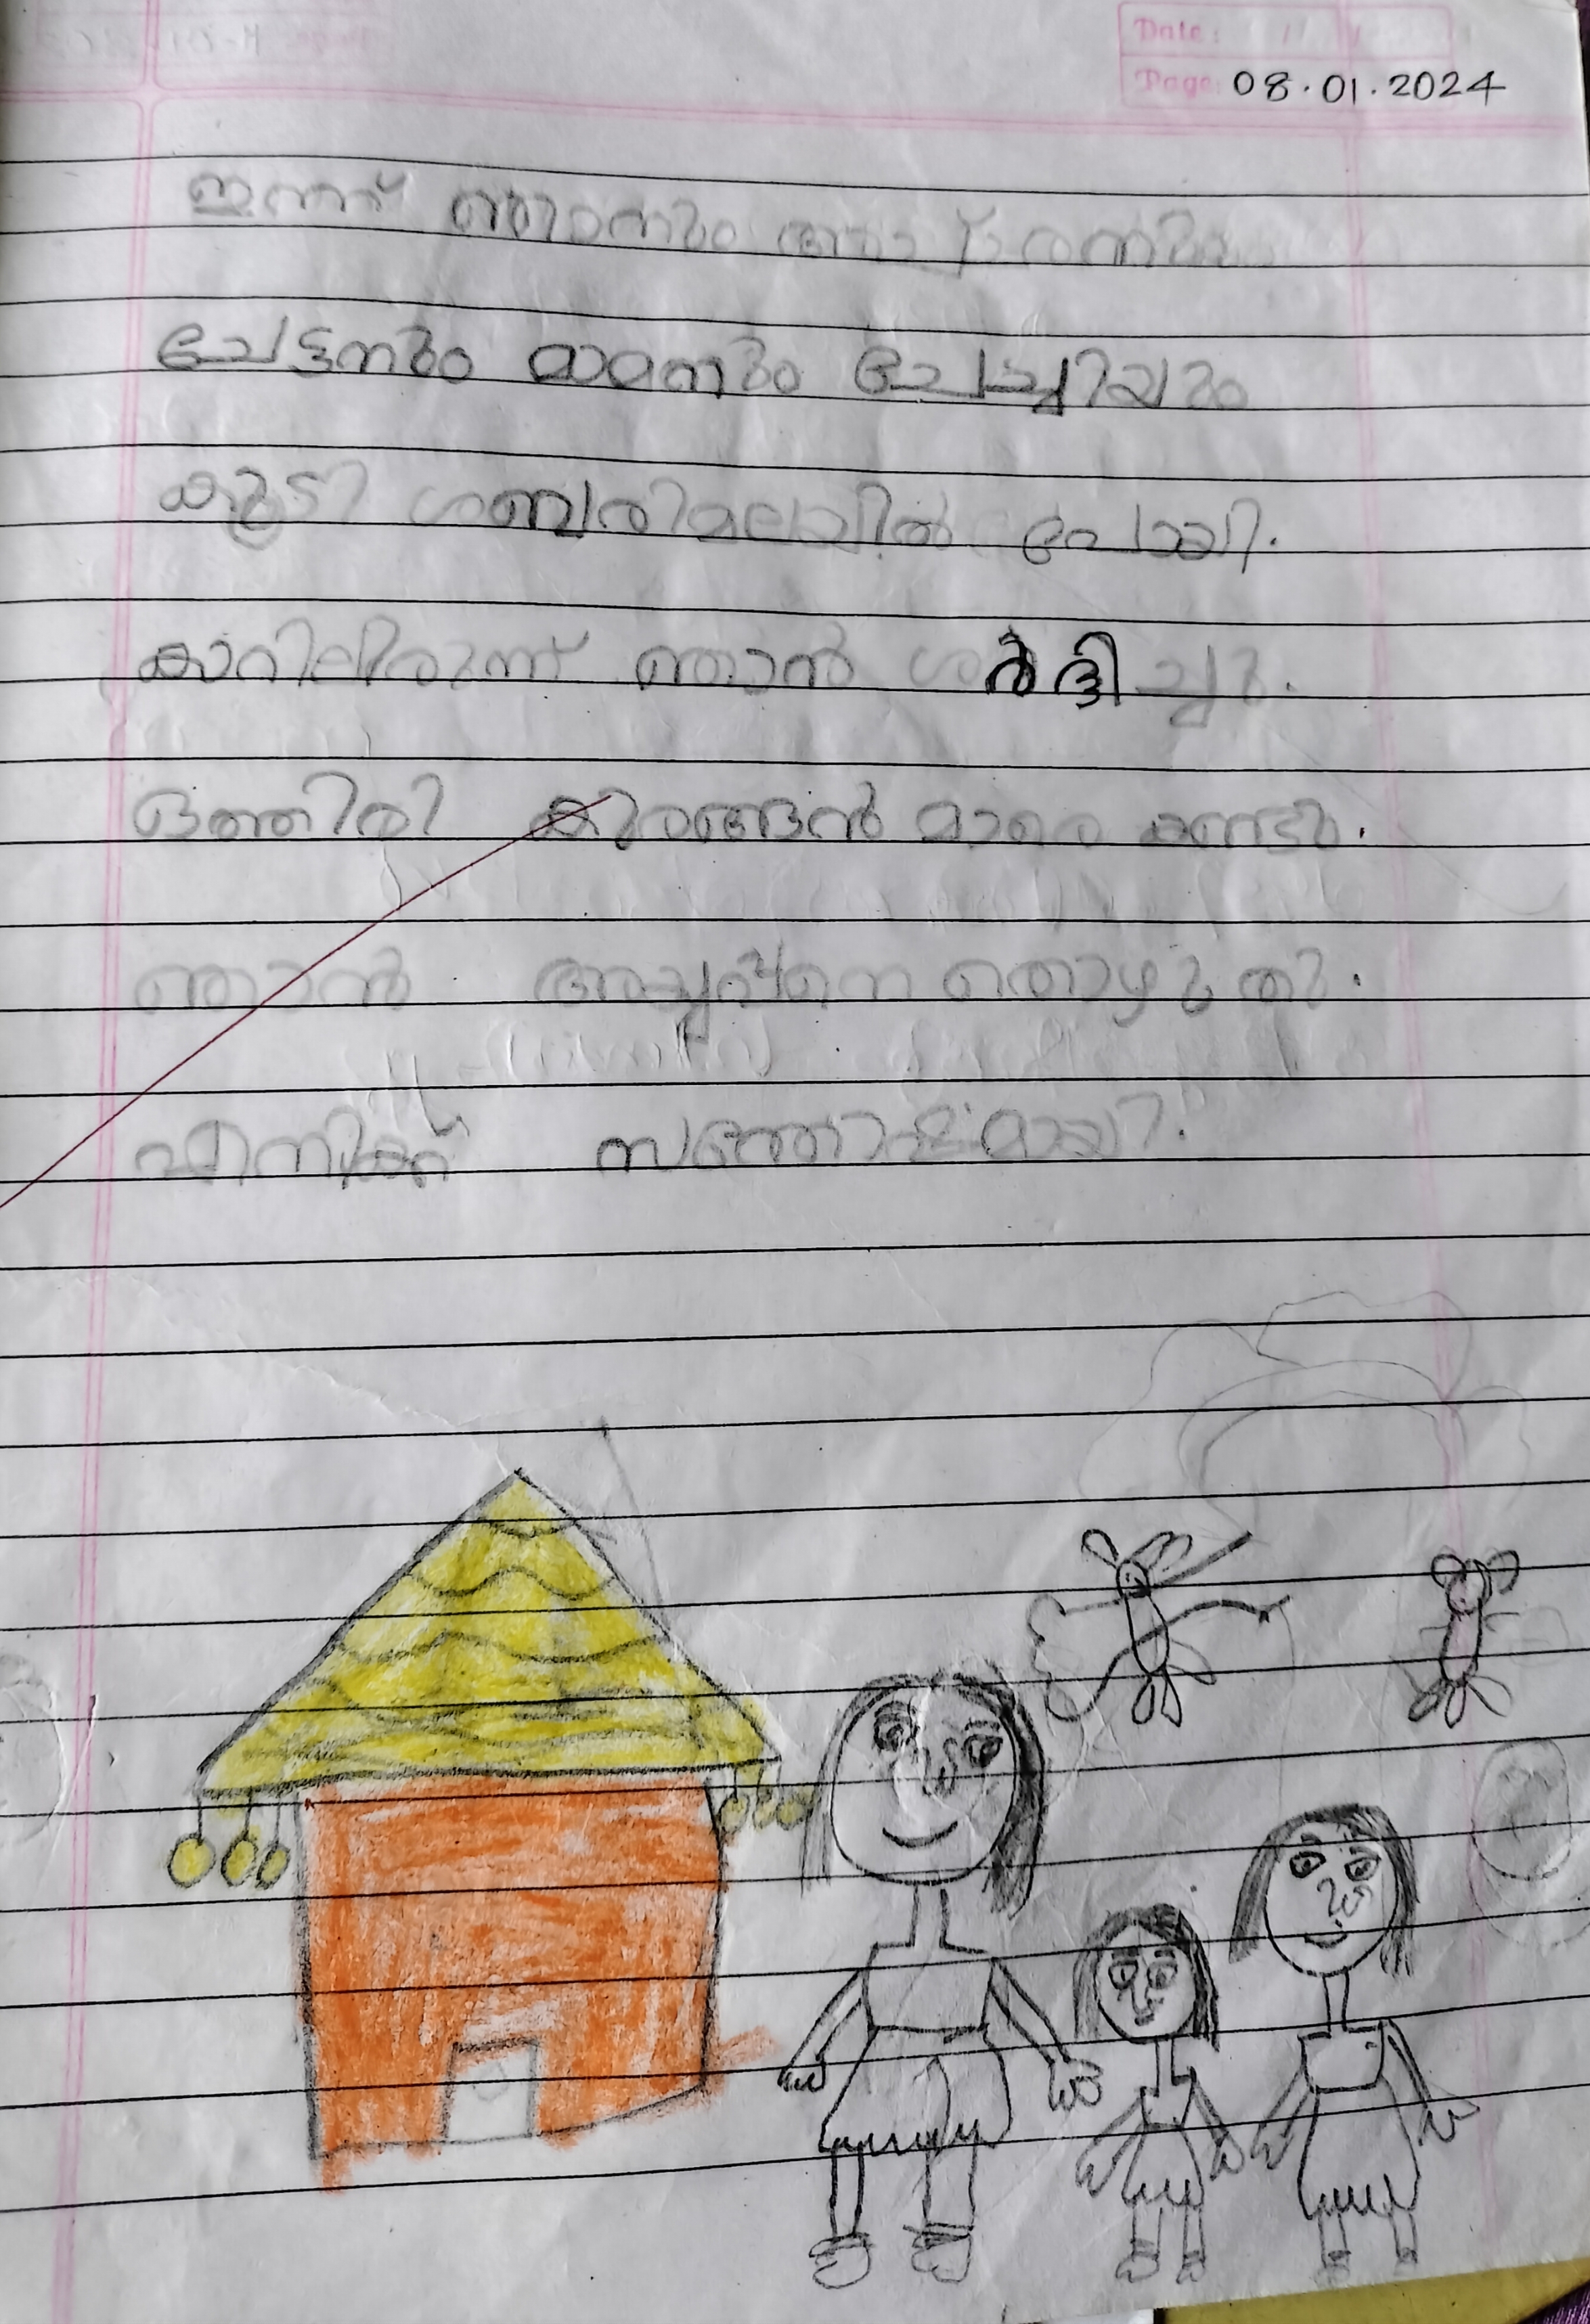 Date:
Page: 08.01.2024
ഇന്ന് ഞാനും
ചേട്ടനും മാമനും ചേച്ചിയും
കൂടി ശബരിമലയിൽ പോയി.
കാറിലിരുന്ന് ഞാൻ ശർദ്ദിച്ചു.
ഒത്തിരി കുരങ്ങൻ മാരെ കണ്ടു.
ഞാൻ അയ്യപ്പനെ തൊഴുതു.
എനിക്ക് സന്തോഷമായി.